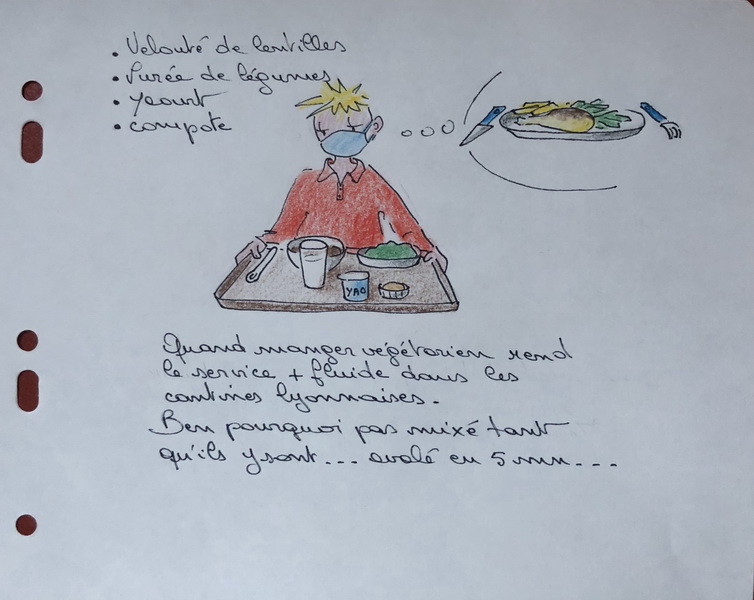 • Velouté de lentilles
• Purée de légumes
• yaourt
• compote
YAO
Quand manger végétarien rend
le service + fluide dans les
cantines lyonnaises.
Ben pourquoi pas mixé tant
qu'ils y sont... avalé en 5 mn...